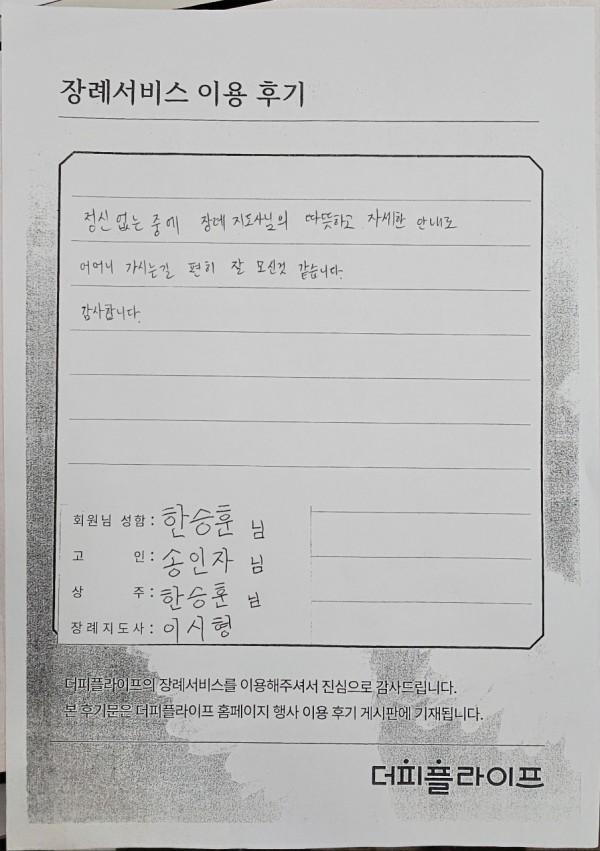 장례서비스 이용 후기
정신 없는 중에 장례 지도사님의 따뜻하고 자세한 안내로
어머니 가시는길 편히 잘 모신것 같습니다.
감사합니다.
회원님 성함 : 한승훈 님
고 인 : 송인자 님
상 주 : 한승훈 님
장례지도사 : 이시형
더피플라이프의 장례서비스를 이용해주셔서 진심으로 감사드립니다.
본 후기문은 더피플라이프 홈페이지 행사 이용 후기 게시판에 기재됩니다.
더피플라이프